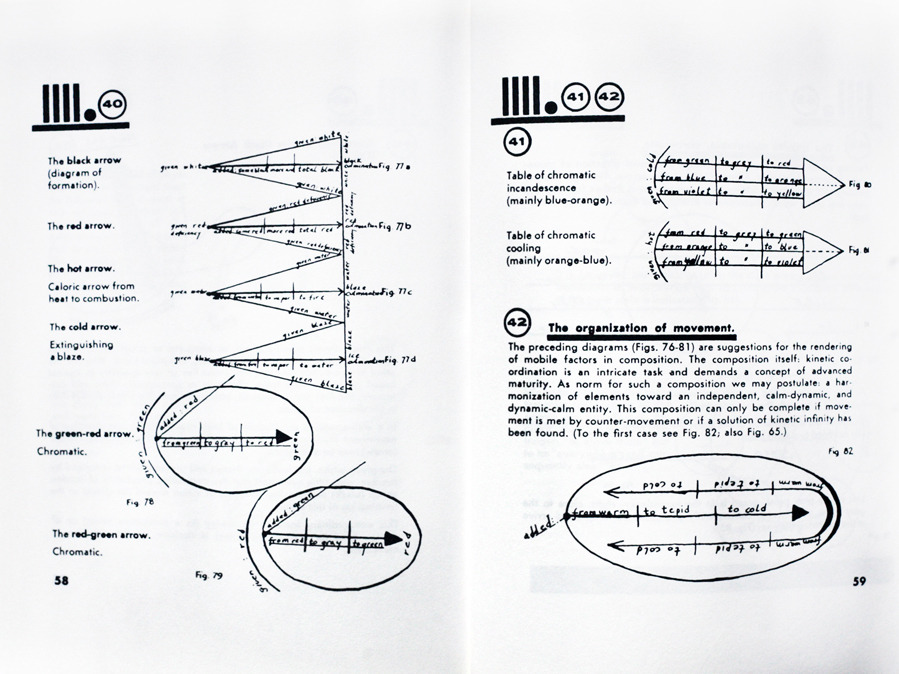 IIII. 40
The black arrow
(diagram of
formation).
given white
given white
added: some black more and total black
black
culmination
Fig. 77 a
given white
The red arrow.
given red deficiency
given red
deficiency
added: some red more red total red
red
culmination
Fig. 77 b
given red deficiency
The hot arrow.
Caloric arrow from
heat to combustion.
given water
given water
to vapor to fire
blaze
culmination
Fig. 77 c
given water
The cold arrow.
Extinguishing
a blaze.
given blaze
given blaze
to vapor to water
ice
culmination
Fig. 77 d
given blaze
The green-red arrow.
Chromatic.
given: green
added: red
from green to gray to red
green
Fig. 78
The red-green arrow.
Chromatic.
given: red
added: green
from red to gray to green
red
Fig. 79
58
IIII. 41 42
41
Table of chromatic
incandescence
(mainly blue-orange).
given: cold
from green to grey to red
from blue to " to orange
from violet to " to yellow
Fig. 80
Table of chromatic
cooling
(mainly orange-blue).
given: hot
from red to grey to green
from orange to " to blue
from yellow to " to violet
Fig. 81
42 The organization of movement.
The preceding diagrams (Figs. 76-81) are suggestions for the rendering
of mobile factors in composition. The composition itself: kinetic co-
ordination is an intricate task and demands a concept of advanced
maturity. As norm for such a composition we may postulate: a har-
monization of elements toward an independent, calm-dynamic, and
dynamic-calm entity. This composition can only be complete if move-
ment is met by counter-movement or if a solution of kinetic infinity has
been found. (To the first case see Fig. 82; also Fig. 65.)
Fig. 82
from warm to tepid to cold
added:
from warm to tepid to cold
from warm to tepid to cold
59